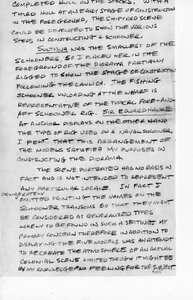 COMPLETED HULL IN THE STOCKS. WITH A
THIRD HULL AT AN EARLY STAGE OF CONSTRUCTION
IN THE FOREGROUND, THE SHIPYARD SCENE
COULD BE DEVOTED TO SHOWING THE VARIOUS
STEPS IN CONSTRUCTING A SCHOONER.
SULTANA WAS THE SMALLEST OF THE
SCHOONERS SO I PLACED HER IN THE
FOREGROUND OF THE DIORAMA PARTIALLY
RIGGED TO SHOW THE STAGE OF CONSTRUCTION
FOLLOWING THE LAUNCH. THE FISHING
SCHOONER UNLOADING AT THE WHARF IS
REPRESENTATIVE OF THE TYPICAL FORE-AND-
AFT SCHOONER RIG. SIR EDWARD HAWKE
AT ANCHOR DISPLAYS ON THE OTHER HAND
THE TYPE OF RIG USED ON A NAVAL SCHOONER.
I FELT THAT THIS ARRANGEMENT OF
THE MODELS SATISFIED MY PURPOSES IN
CONSTRUCTING THE DIORAMA.
THE SCENE PORTRAYED HAS NO BASIS IN
FACT AND IS NOT INTENDED TO REPRESENT
ANY PARTICULAR LOCALE. IN FACT I
DELIBERATELY
OMITTED PAINTING THE NAMES ON THE
SCHOONERS TRANSOMS SO THAT THEY MIGHT
BE CONSIDERED AS GENERALIZED TYPES
LIKELY TO BE FOUND IN SUCH A SETTING. MY
PRIMARY CONCERN THEREFORE IN ADDITION TO
DISPLAYING THE FIVE MODELS WAS AN ATTEMPT
TO RECREATE THE ATMOSPHERE OF AN ACTUAL
COLONIAL SCENE LIMITED THOUGH IT MIGHT BE
BY MY KNOWLEDGE AND FEELING FOR THE SUBJECT